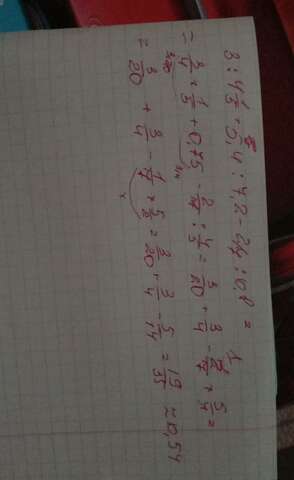 3 : 4 1/5 + 5,4 : 7,2 - 2/7 : 0,8 =
= 3/4 × 1/5 + 0,75 - 2/7 : 4/5 = 3/20 + 3/4 - 2/7 × 5/4 =
= 3/20 + 3/4 - 1/7 × 5/2 = 3/20 + 3/4 - 5/14 = 19/35 ≈ 0,54